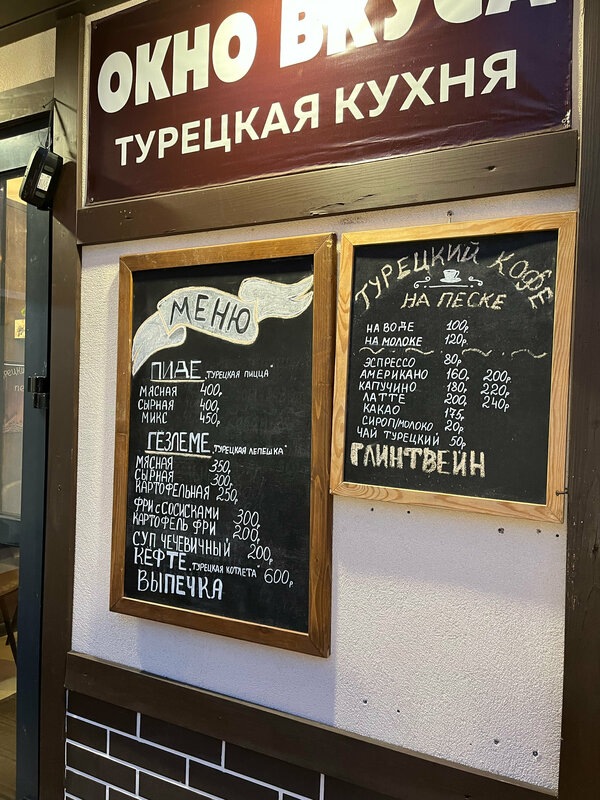 ОКНО ВКУСА
ТУРЕЦКАЯ КУХНЯ
МЕНЮ
ПИДЕ „ТУРЕЦКАЯ ПИЦЦА"
МЯСНАЯ 400р
СЫРНАЯ 400р
МИКС 450р
ГЁЗЛЕМЕ „ТУРЕЦКАЯ ЛЕПЕШКА"
МЯСНАЯ 350р
СЫРНАЯ 300р
КАРТОФЕЛЬНАЯ 250р
ФРИ с СОСИСКАМИ 300р
КАРТОФЕЛЬ ФРИ 200р
СУП ЧЕЧЕВИЧНЫЙ 200р
КЕФТЕ „ТУРЕЦКАЯ КОТЛЕТА" 600р
ВЫПЕЧКА
ТУРЕЦКИЙ КОФЕ
НА ПЕСКЕ
НА ВОДЕ 100р
НА МОЛОКЕ 120р
ЭСПРЕССО 80р
АМЕРИКАНО 160р 200р
КАПУЧИНО 180р 220р
ЛАТТЕ 200р 240р
КАКАО 175р
СИРОП/МОЛОКО 20р
ЧАЙ ТУРЕЦКИЙ 50р
ГЛИНТВЕЙН